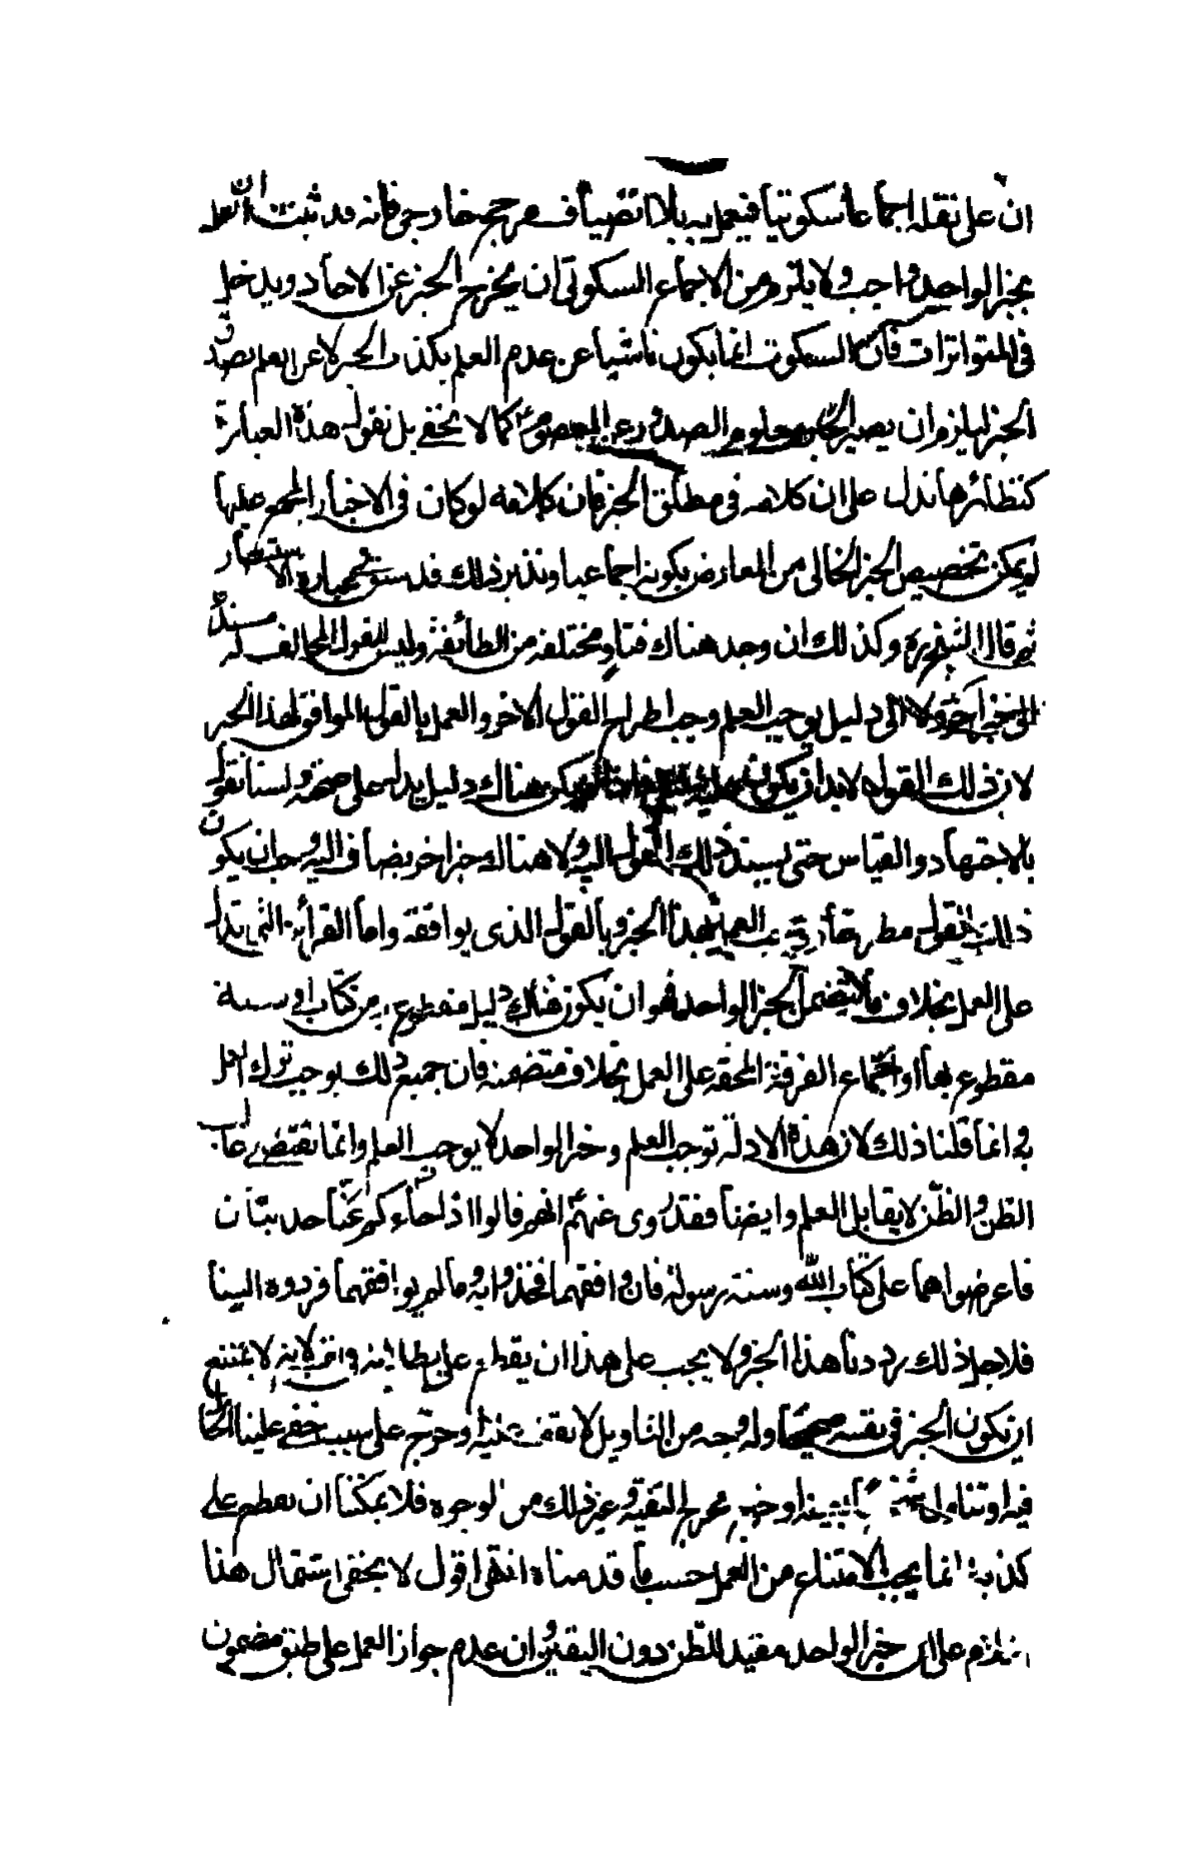 ان على نقله اجماعا سكوتيا فيعمل به بلا انضياف مرجح خارجي فانه قد ثبت ان العمل
بخبر الواحد واجب ولا يلزم من الاجماع السكوتي ان يخرج الخبر عن الاحاد ويدخل
في المتواترات فان السكوت انما يكون ناشيا عن عدم العلم بكذب الخبر لا عن العلم بصدق
الخبر ليلزم ان يصير الخبر معلوم الصدور عن المعصوم كما لا يخفى بل نقول هذه العبارة
كنظائرها تدل على ان كلامه في مطلق الخبر فان كلامه لو كان في الاخبار المجمع عليها
لم يمكن تخصيص الخبر الخالي من المعارض بكونه اجماعيا وتدبر ذلك قد سبق عبارة الاستبصار
ثم قال الشيخ ره وكذلك ان وجد هناك فتاو مختلفة من الطائفة وليس للقول المخالف له مستند
الى خبر آخر ولا الى دليل يوجب العلم وجب اطراح القول الاخر والعمل بالقول الموافق لهذا الخبر
لان ذلك القول لابد ان يكون عليه دليل فاذا لم يكن هناك دليل يدل على صحته ولسنا نقول
بالاجتهاد والقياس حتى يسند ذلك القول اليه ولا هناك خبر اخر يضاف اليه وجب ان يكون
ذلك القول مطرحا ووجب العمل بهذا الخبر وبالقول الذى يوافقه واما القرائن التي تدل
على العمل بخلاف ما يتضمن الخبر الواحد فهو ان يكون هناك دليل مقطوع به من كتاب او سنة
مقطوع بها او اجماع الفرقة المحقة على العمل بخلاف متضمنه فان جميع ذلك يوجب ترك العمل
به انما قلنا ذلك لان هذه الادلة توجب العلم وخبر الواحد لا يوجب العلم وانما يقتضي غالب
الظن والظن لا يقابل العلم وايضا فقد روى عنهم انهم قالوا اذا جاءكم عنا حديثان
فاعرضوا هما على كتاب الله وسنة رسوله فان وافقهما فخذوا به وما لم يوافقهما فردوه الينا
فلاجل ذلك رددنا هذا الخبر ولا يجب على هذا ان يقطع على بطلانه وانه لا يمتنع
ان يكون الخبر في نفسه صحيحا وله وجه من التاويل لا نقف عليه او خرج على سبب خفي علينا الحال
فيه او تناول شخصا بعينه او خرج مخرج التقية وغير ذلك من الوجوه فلا يمكننا ان نقطع على
كذبه انما يجب الامتناع من العمل حسب ما قدمناه انتهى اقول لا يخفى اشتمال هذا
على ان خبر الواحد مفيد للظن دون اليقين وان عدم جواز العمل على طبق مضمون